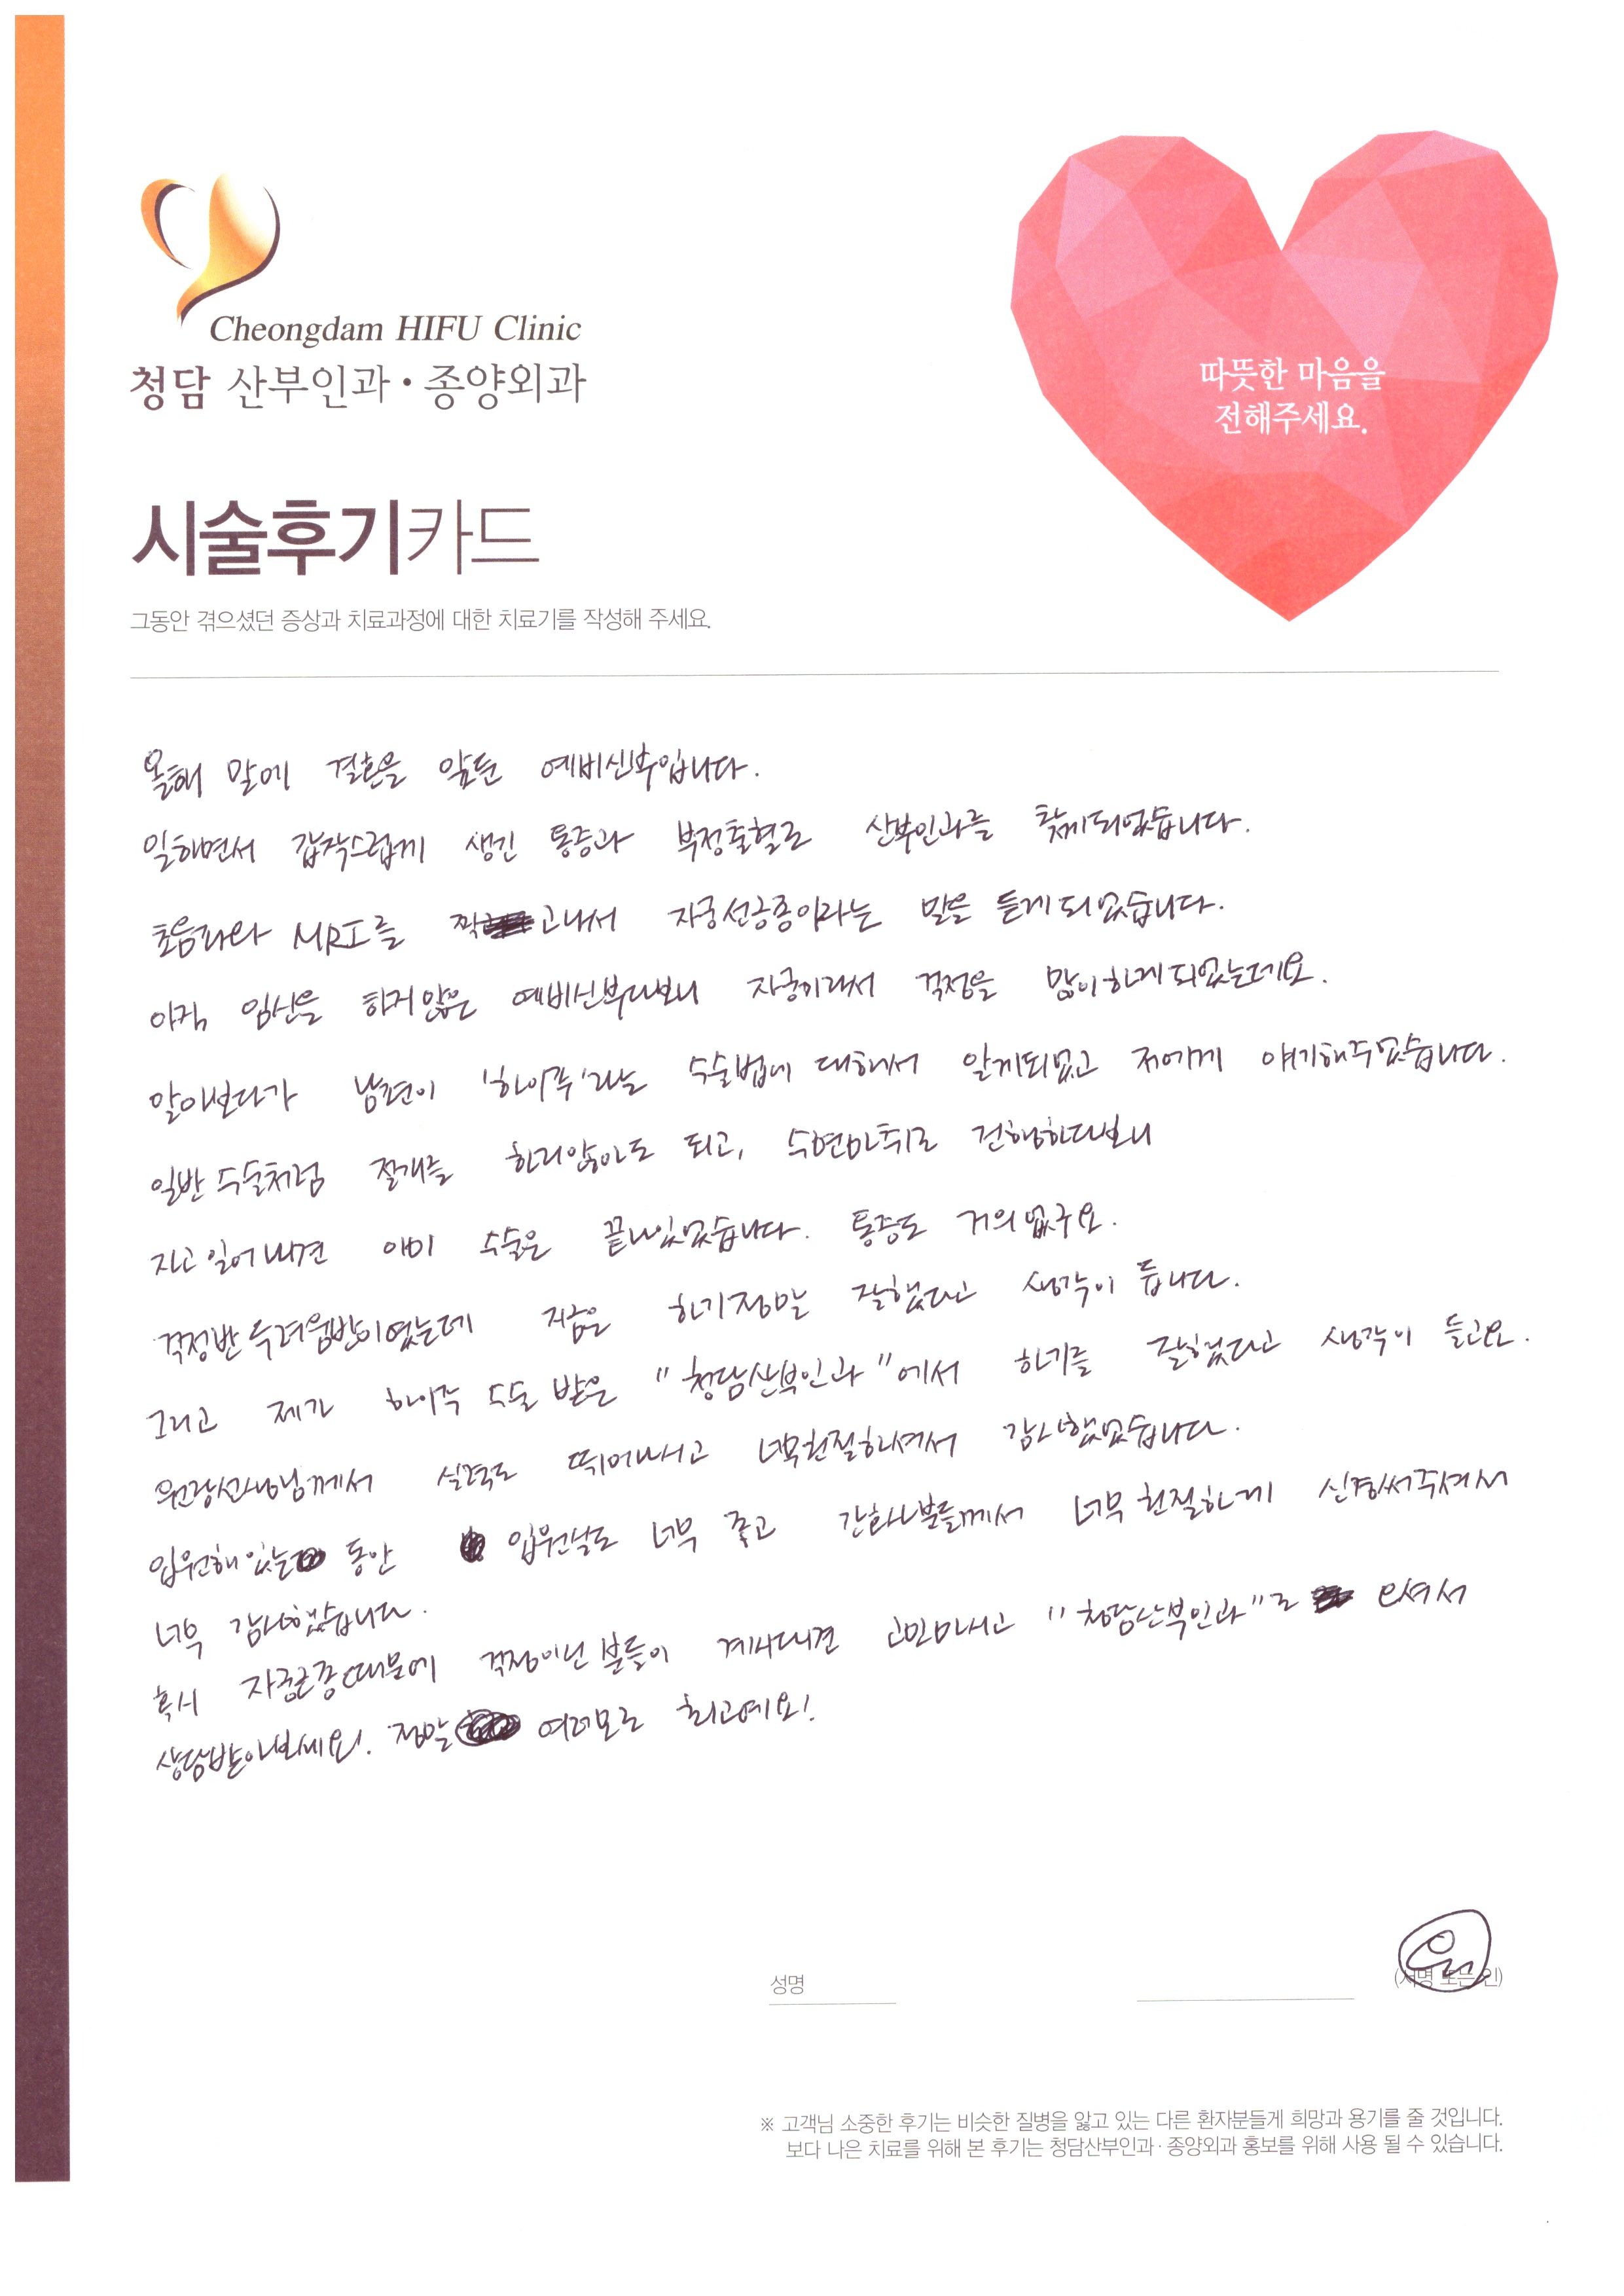 Cheongdam HIFU Clinic
청담 산부인과·종양외과
따뜻한 마음을
전해주세요.
시술후기카드
그동안 겪으셨던 증상과 치료과정에 대한 치료기를 작성해 주세요.
올해 말에 결혼을 앞둔 예비신부입니다.
일하면서 갑작스럽게 생긴 통증과 부정출혈로 산부인과를 찾게되었습니다.
초음파와 MRI를 찍고나서 자궁선근종이라는 말을 듣게되었습니다.
아직 임신을 하지않은 예비신부다보니 자궁이라서 걱정을 많이하게되었는데요.
알아보다가 남편이 '하이푸'라는 수술법에 대해서 알게되었고 저에게 얘기해주었습니다.
일반 수술처럼 절개를 하지않아도 되고, 수면마취로 진행하다보니
자고 일어나니 이미 수술은 끝나있었습니다. 통증도 거의 없구요.
걱정반 두려움반이었는데 지금은 하기정말 잘했다고 생각이 듭니다.
그리고 제가 하이푸 수술 받은 "청담산부인과"에서 하기를 잘했었다고 생각이 들고요.
원장선생님께서 실력도 뛰어나시고 너무친절하셔서 감사했었습니다.
입원해있는 동안 입원실도 너무 좋고 간호사분들께서 너무 친절하게 신경써주셔서
너무 감사했습니다.
혹시 자궁근종때문에 걱정이신 분들이 계시다면 고민마시고 "청담산부인과"로 오셔서
상담받아보세요!. 정말 여러모로 최고예요!
성명
(서명 또는 인)
※ 고객님 소중한 후기는 비슷한 질병을 앓고 있는 다른 환자분들게 희망과 용기를 줄 것입니다.
보다 나은 치료를 위해 본 후기는 청담산부인과·종양외과 홍보를 위해 사용 될 수 있습니다.